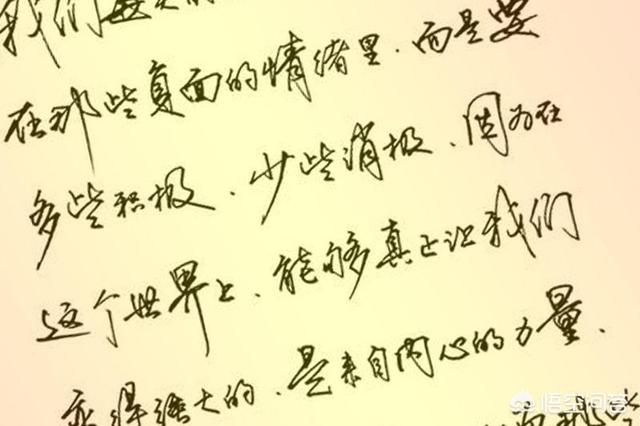 我们每天的
在那些负面的情绪里.而是要
多些积极、少些消极、因为在
这个世界上、能够真正让我们
变得强大的、是来自内心的力量、
而那些
悟空问答